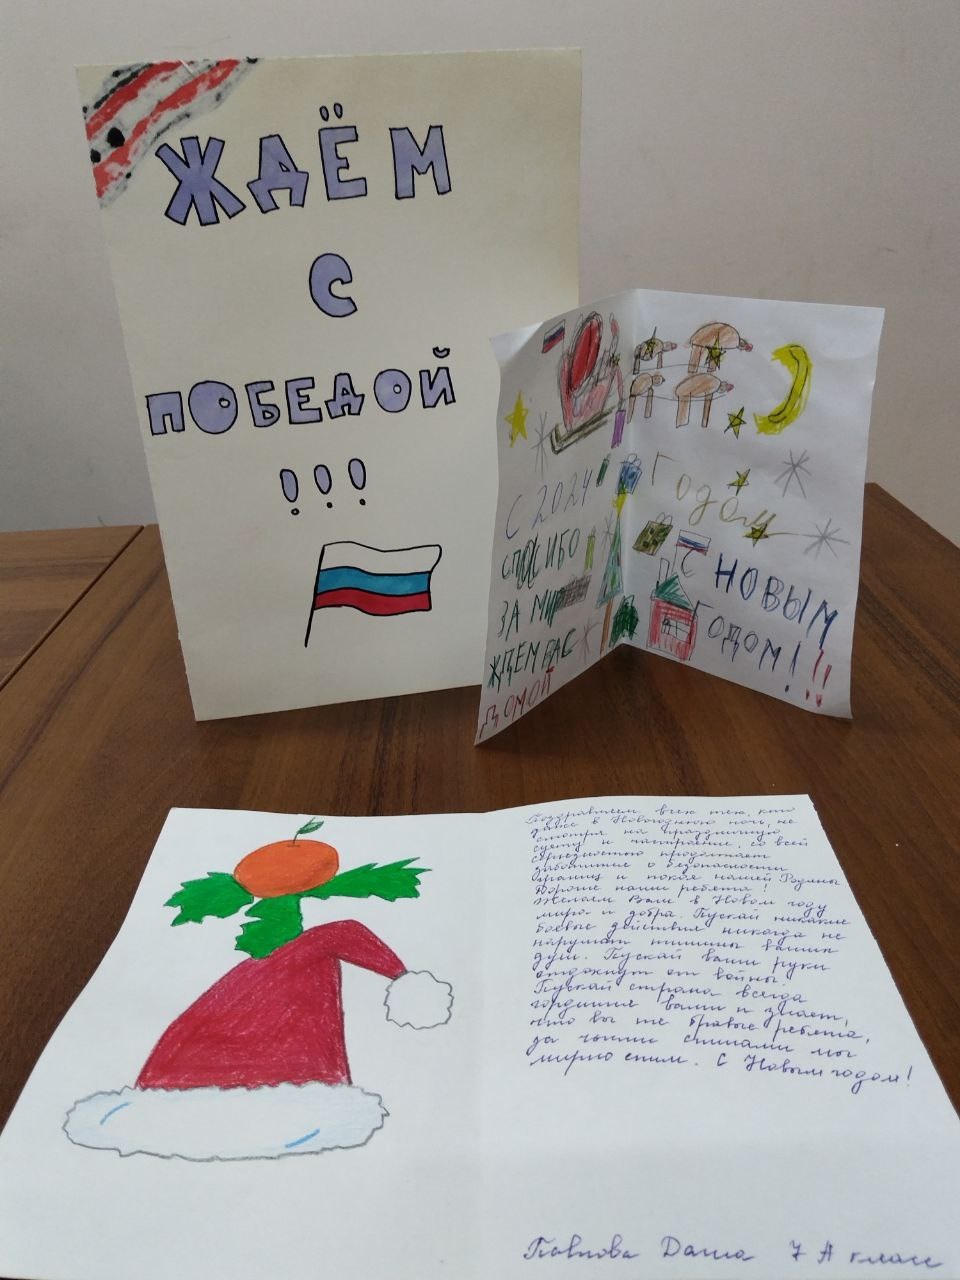 ЖДЁМ
С
ПОБЕДОЙ
!!!
С 2024
СПАСИБО
ЗА МИР
ЖДЕМ ВАС
ДОМОЙ
Годом
С НОВЫМ
ГОДОМ!!!
Поздравляем всех тех, кто
даже в Новогоднюю ночь, не
смотря на праздничную
суету и настроение, со всей
серьезностью продолжает
заботится о безопасности
границ и покоя нашей Родины
Дорогие наши ребята!
Желаем Вам в Новом году
мира и добра. Пускай никакие
боевые действия никогда не
нарушат тишины ваших
душ. Пускай ваши руки
отдохнут от войны.
Пускай страна всегда
гордится вами и знает,
что вы те бравые ребята,
за чьими спинами мы
мирно спим. С Новым годом!
Павлова Даша 7 А класс